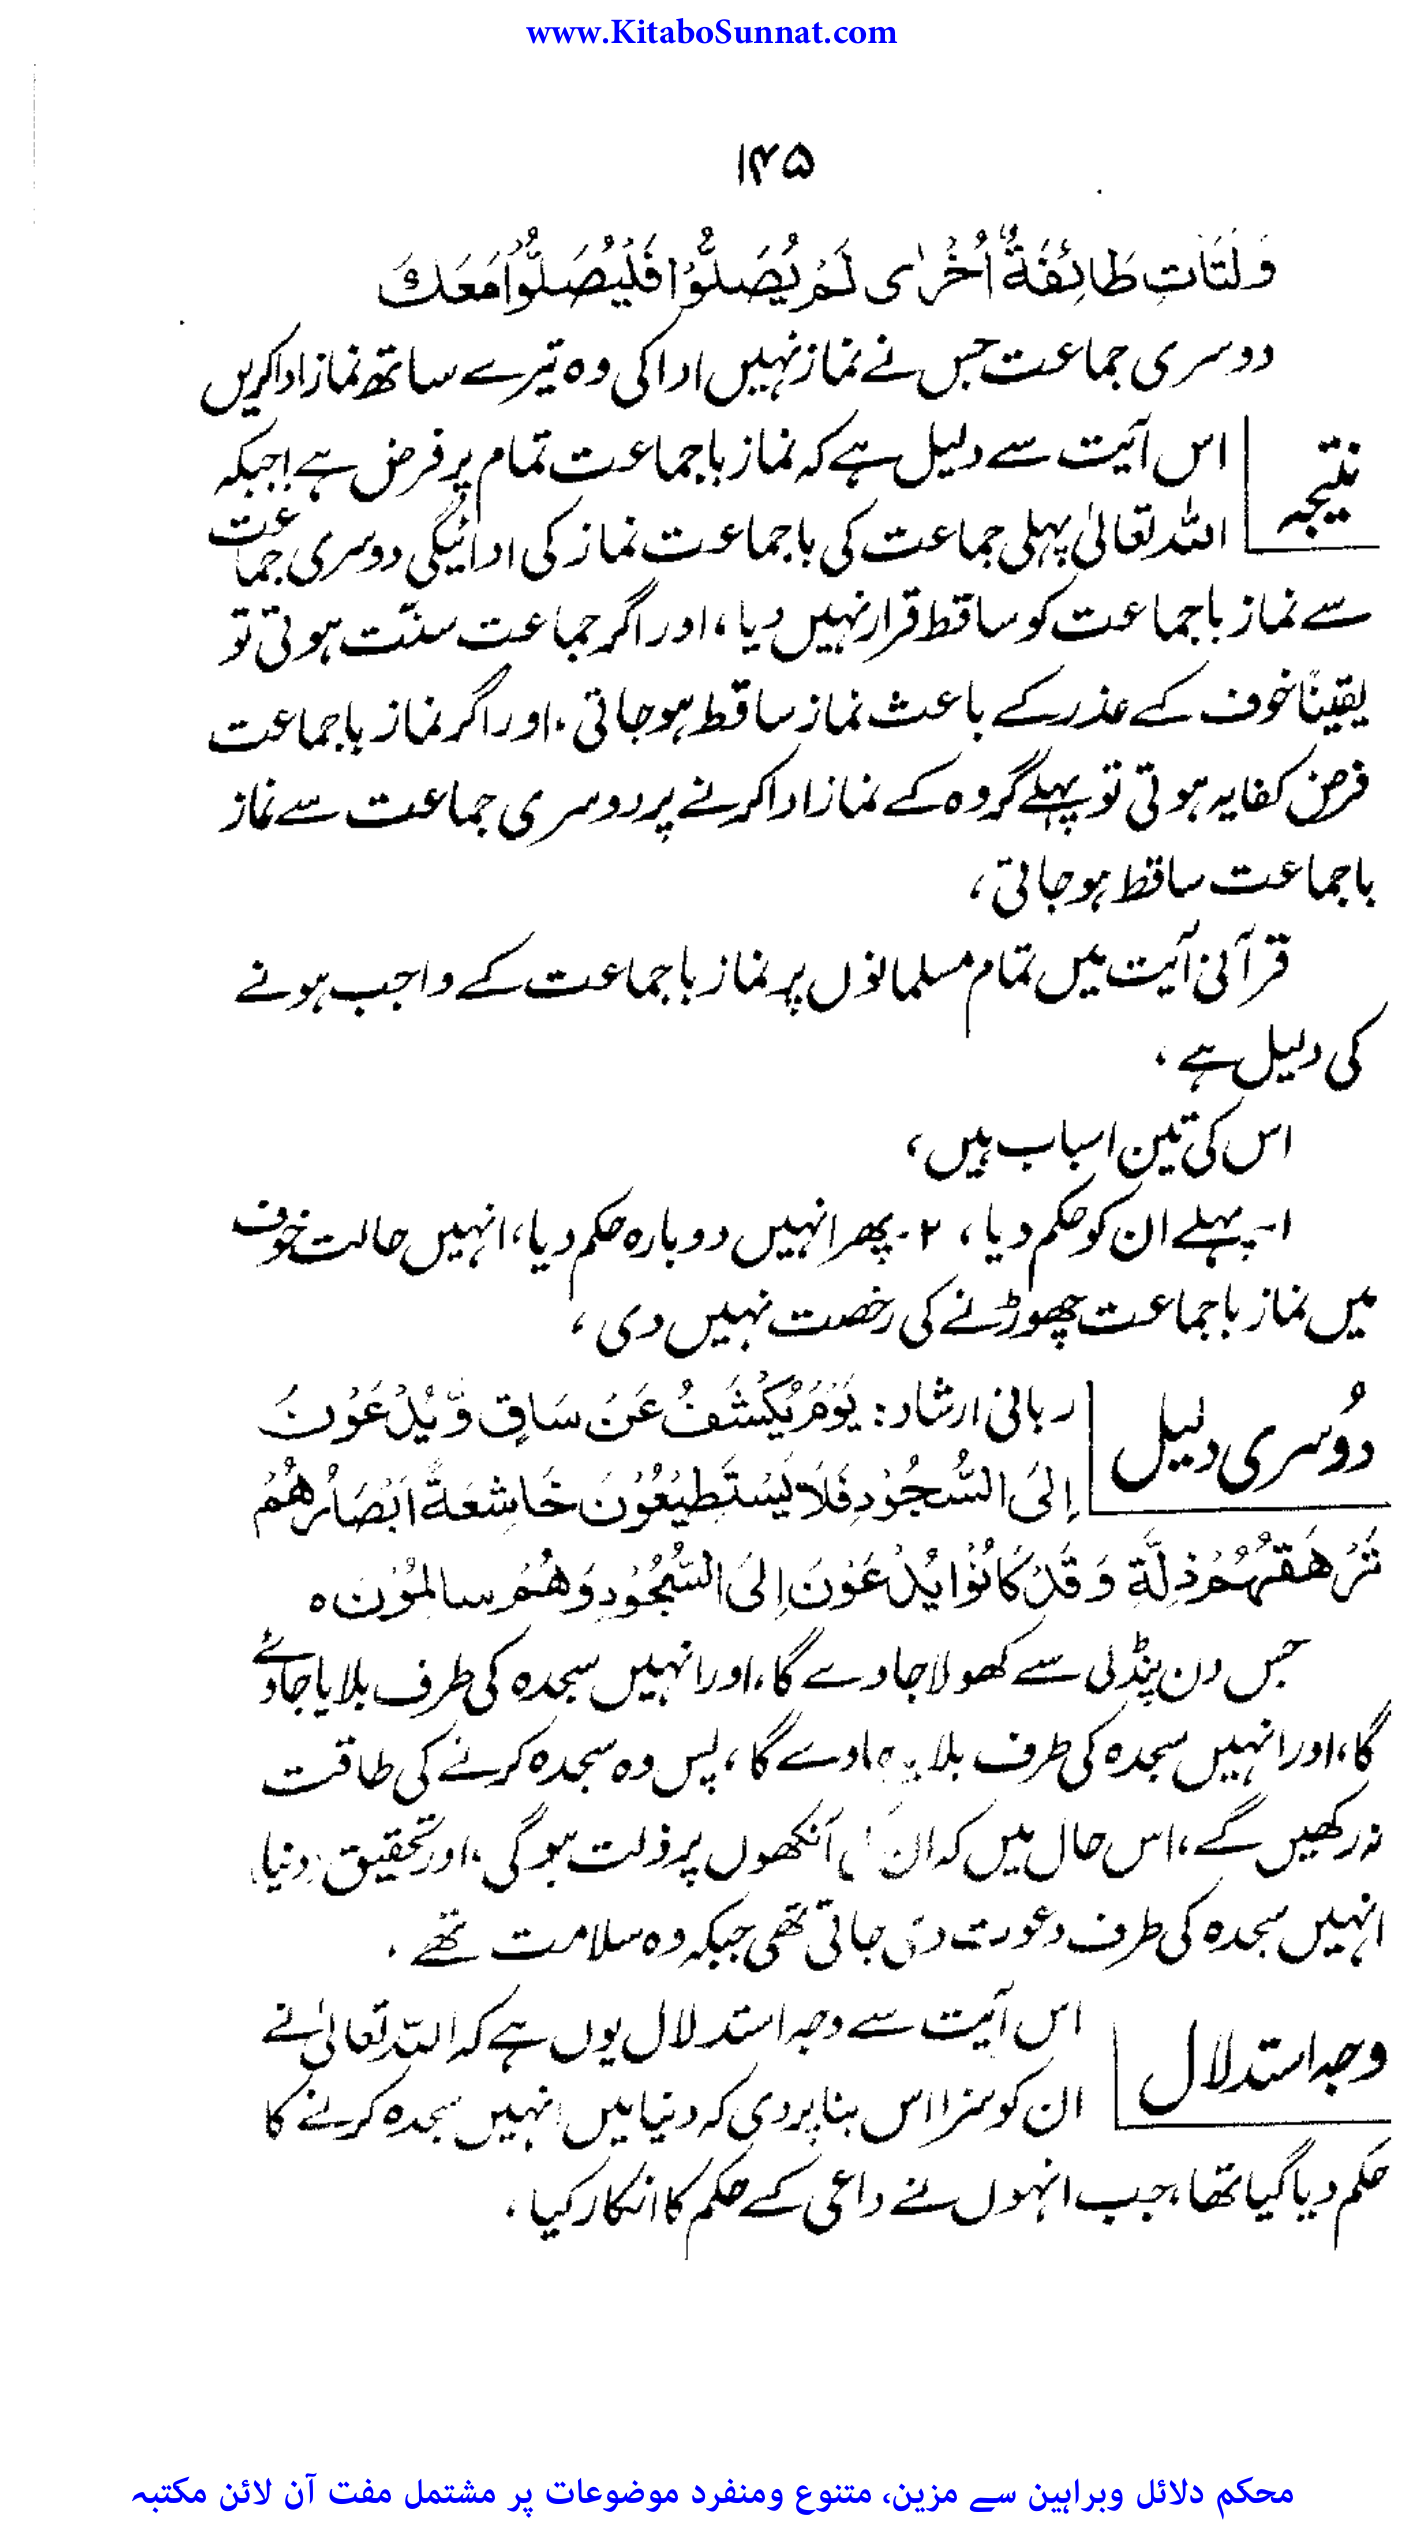 www.KitaboSunnat.com
۱۴۵
وَلْتَاْتِ طَائِفَةٌ اُخْرٰى لَمْ يُصَلُّوْا فَلْيُصَلُّوْا مَعَكَ
دوسری جماعت جس نے نماز نہیں ادا کی وہ تیرے ساتھ نماز ادا کریں
نتیجہ
اس آیت سے دلیل ہے کہ نماز باجماعت تمام پر فرض ہے، جبکہ
اللہ تعالیٰ پہلی جماعت کی باجماعت نماز کی ادائیگی دوسری جماعت
سے نماز باجماعت کو ساقط قرار نہیں دیا، اور اگر جماعت سنّت ہوتی تو
یقینًا خوف کے عذر کے باعث نماز ساقط ہوجاتی، اور اگر نماز باجماعت
فرض کفایہ ہوتی تو پہلے گروہ کے نماز ادا کرنے پر دوسری جماعت سے نماز
باجماعت ساقط ہوجاتی،
قرآنی آیت میں تمام مسلمانوں پر نماز باجماعت کے واجب ہونے
کی دلیل ہے،
اس کی تین اسباب ہیں،
۱- پہلے ان کو حکم دیا، ۲- پھر انہیں دوبارہ حکم دیا، انہیں حالت خوف
میں نماز باجماعت چھوڑنے کی رخصت نہیں دی،
دُوسری دلیل
ربانی ارشاد: يَوْمَ يُكْشَفُ عَنْ سَاقٍ وَّيُدْعَوْنَ
اِلَى السُّجُوْدِ فَلَا يَسْتَطِيْعُوْنَ خَاشِعَةً اَبْصَارُهُمْ
تَرْهَقُهُمْ ذِلَّةٌ وَقَدْ كَانُوْا يُدْعَوْنَ اِلَى السُّجُوْدِ وَهُمْ سالِمُوْنَ ه
جس دن پنڈلی سے کھولا جاوے گا، اور انہیں سجدہ کی طرف بلایا جاوے
گا، اور انہیں سجدہ کی طرف بلایا جاوے گا، پس وہ سجدہ کرنے کی طاقت
نہ رکھیں گے، اس حال میں کہ ان کی آنکھوں پر ذلت ہوگی، اور تحقیق (دنیا)
انہیں سجدہ کی طرف دعوت دی جاتی تھی جبکہ وہ سلامت تھے،
وجہ استدلال
اس آیت سے وجہ استدلال یوں ہے کہ اللہ تعالیٰ نے
ان کو سزا اس بنا پر دی کہ دنیا میں انہیں سجدہ کرنے کا
حکم دیا گیا تھا، جب انہوں نے داعی کے حکم کا انکار کیا،
محکم دلائل وبراہین سے مزین، متنوع ومنفرد موضوعات پر مشتمل مفت آن لائن مکتبہ